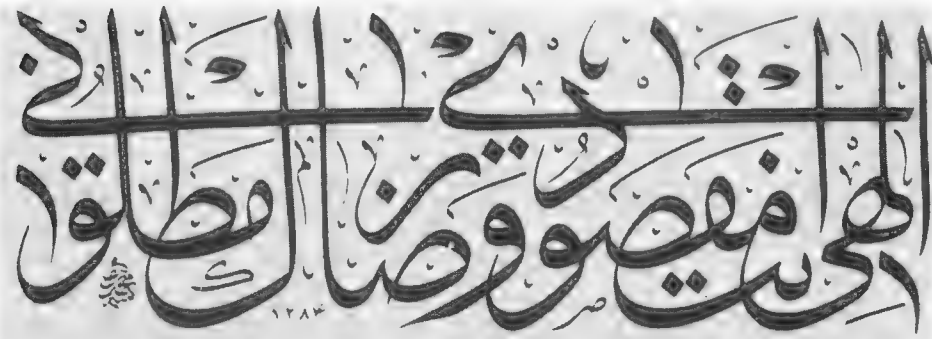 الهي انت مقصودي ورضاك مطلوبي
١٢٨٣